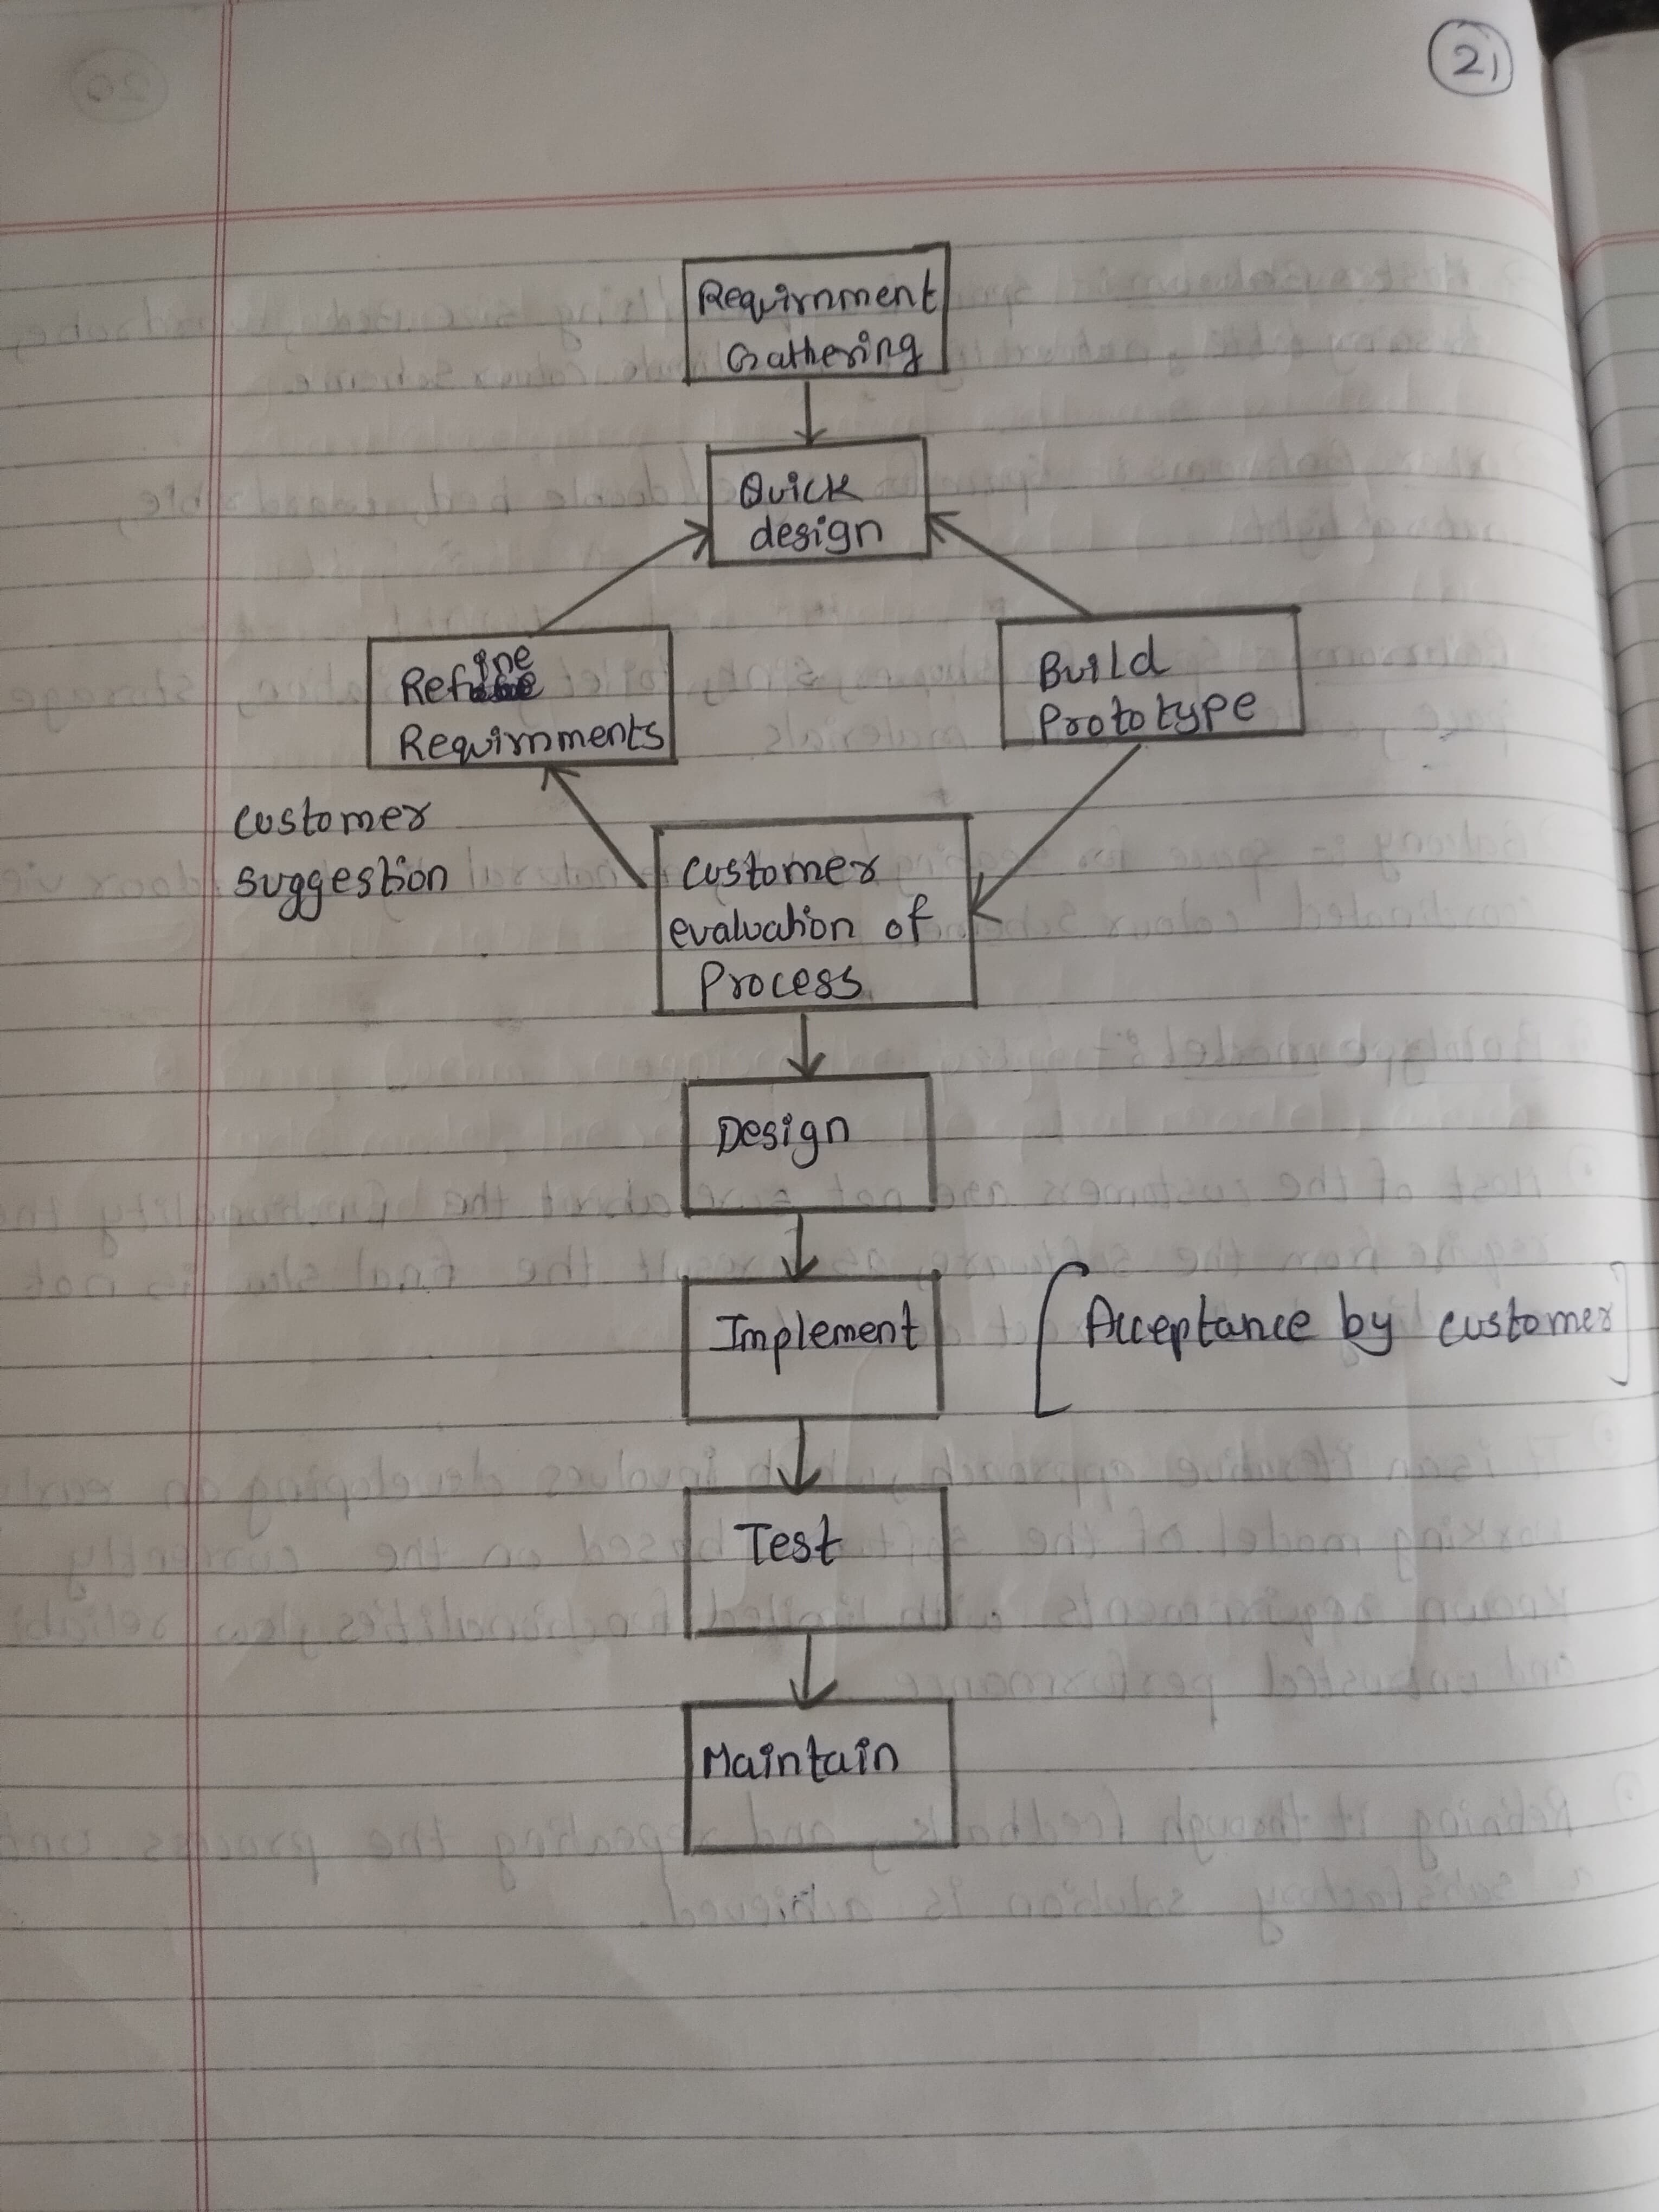 21
Requirnment
Gathering
Quick
design
Refine
Requirnments
Build
Prototype
customer
suggestion
customer
evaluation of
Process
Design
Implement
[Acceptance by customer]
Test
Maintain